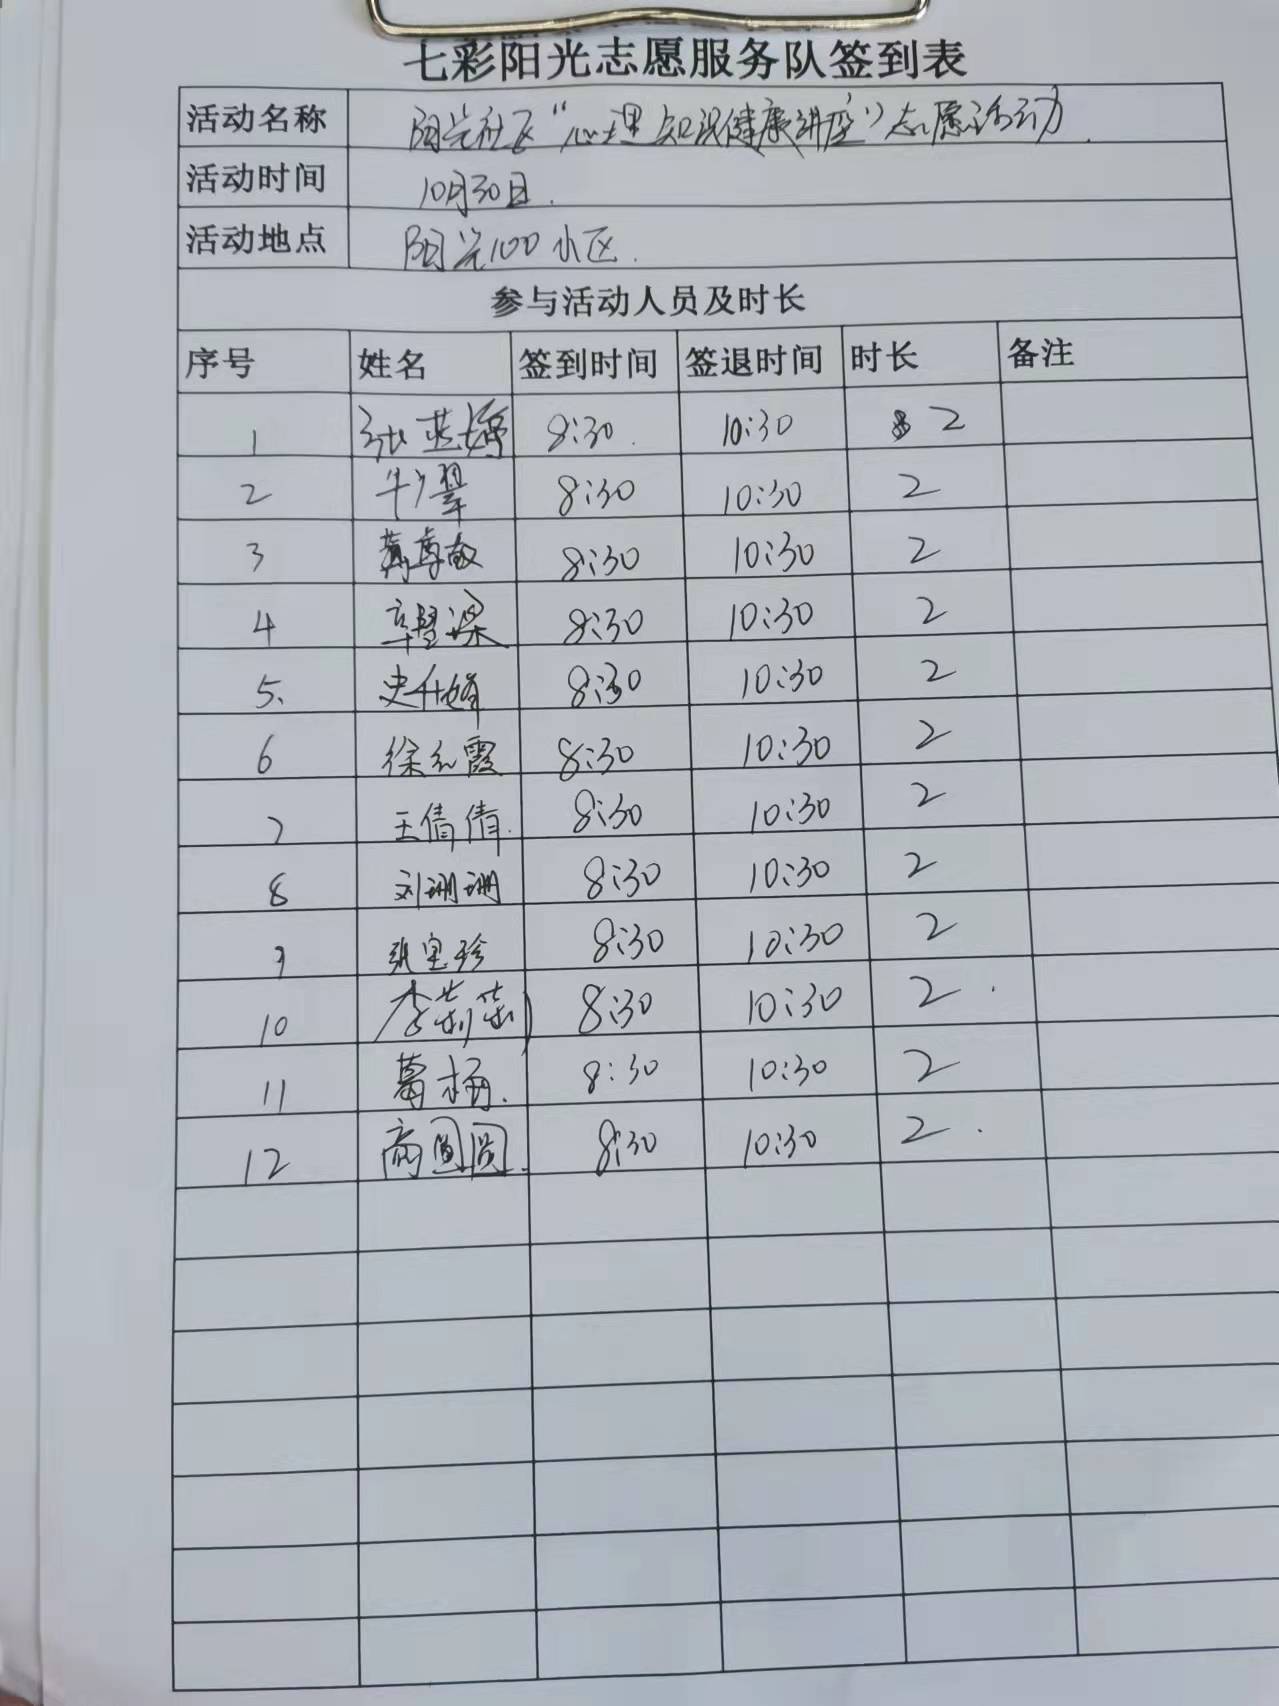 七彩阳光志愿服务队签到表
活动名称 阳光社区“心理知识健康讲座”志愿活动.
活动时间 10月30日.
活动地点 阳光100小区.
参与活动人员及时长
序号 姓名 签到时间 签退时间 时长 备注
1 张蓝婷 8:30. 10:30 2
2 牛翠 8:30 10:30 2
3 8:30 10:30 2
4 8:30 10:30 2
5、 史 8:30 10:30 2
6 徐红霞 8:30 10:30 2
7 王倩倩. 8:30 10:30 2
8 刘珊珊 8:30 10:30 2
9 张宝珍 8:30 10:30 2
10 李莉莉 8:30 10:30 2.
11 葛杨. 8:30 10:30 2
12 高圆圆. 8:30 10:30 2.